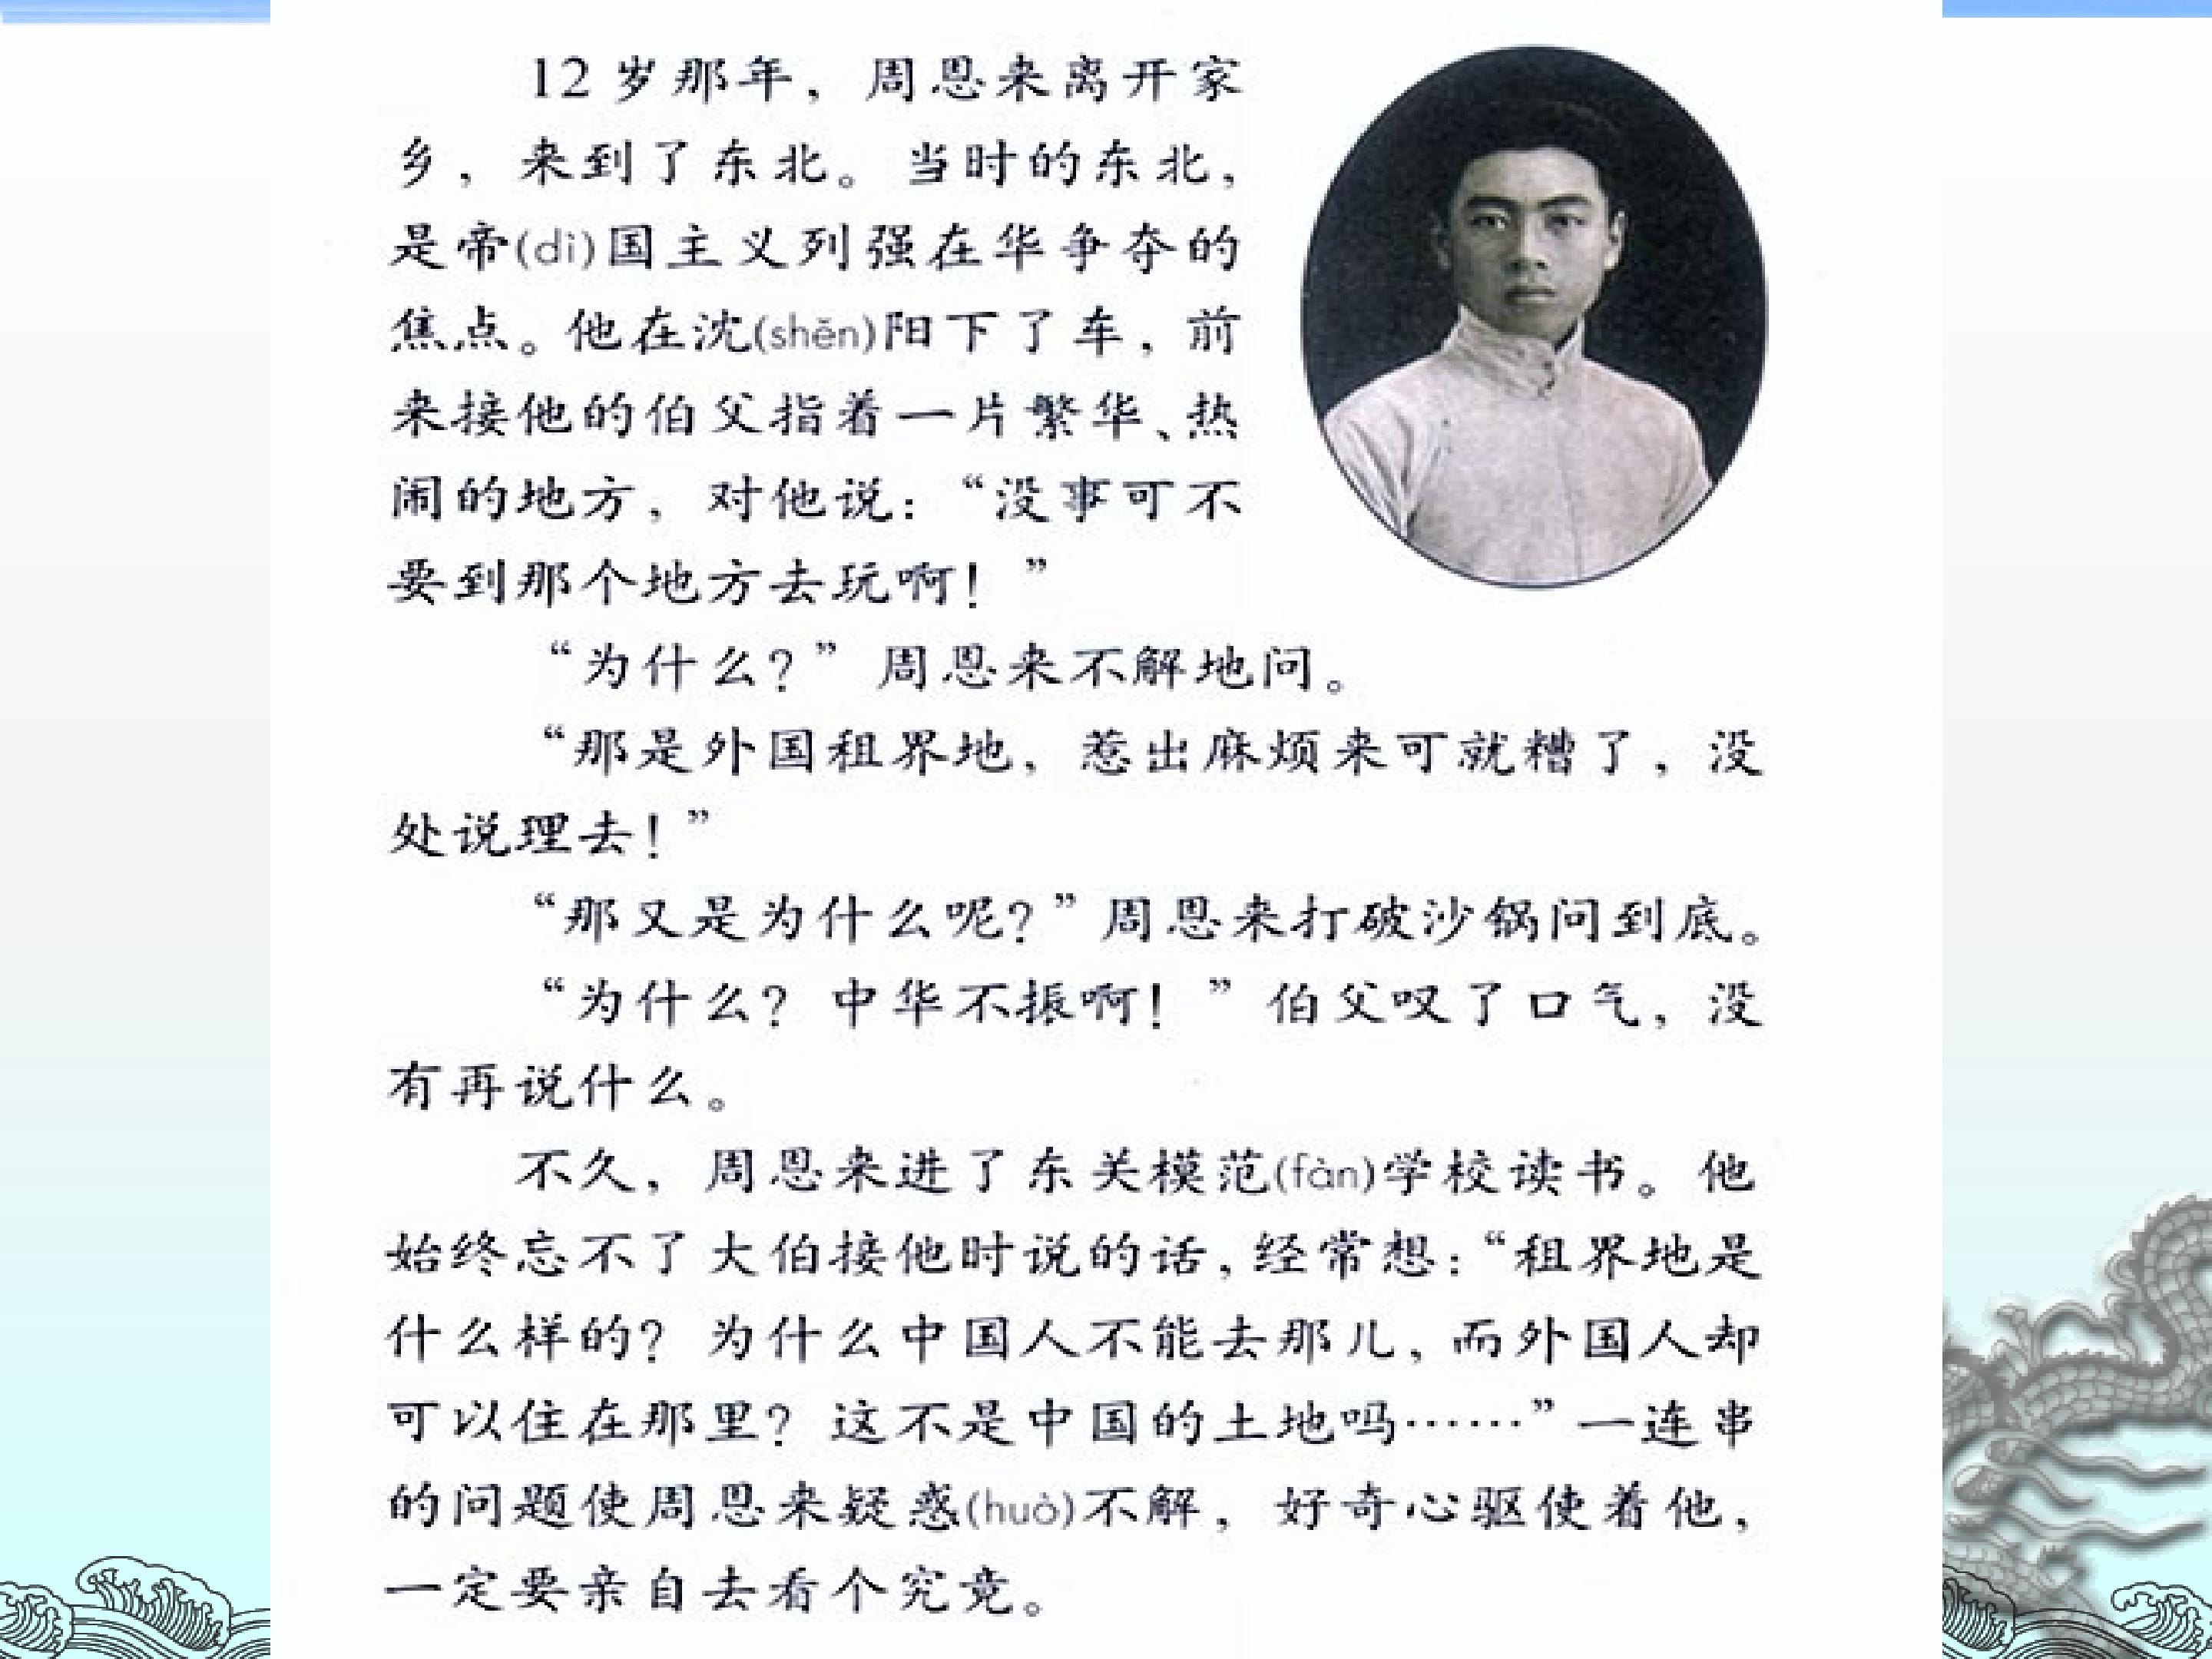 12岁那年，周恩来离开家
乡，来到了东北。当时的东北，
是帝(dì)国主义列强在华争夺的
焦点。他在沈(shěn)阳下了车，前
来接他的伯父指着一片繁华、热
闹的地方，对他说：“没事可不
要到那个地方去玩啊！”
“为什么？”周恩来不解地问。
“那是外国租界地，惹出麻烦来可就糟了，没
处说理去！”
“那又是为什么呢？”周恩来打破沙锅问到底。
“为什么？中华不振啊！”伯父叹了口气，没
有再说什么。
不久，周恩来进了东关模范(fàn)学校读书。他
始终忘不了大伯接他时说的话，经常想：“租界地是
什么样的？为什么中国人不能去那儿，而外国人却
可以住在那里？这不是中国的土地吗……”一连串
的问题使周恩来疑惑(huò)不解，好奇心驱使着他，
一定要亲自去看个究竟。